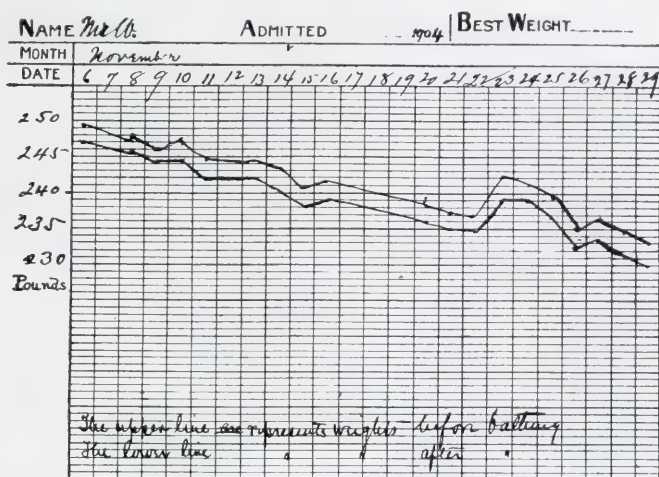 NAME Mr W. ADMITTED 1904 BEST WEIGHT
MONTH November
DATE 6 7 8 9 10 11 12 13 14 15 16 17 18 19 20 21 22 23 24 25 26 27 28 29
250
245
240
235
230
Pounds
The upper line represents weights before bathing
The lower line " " after "